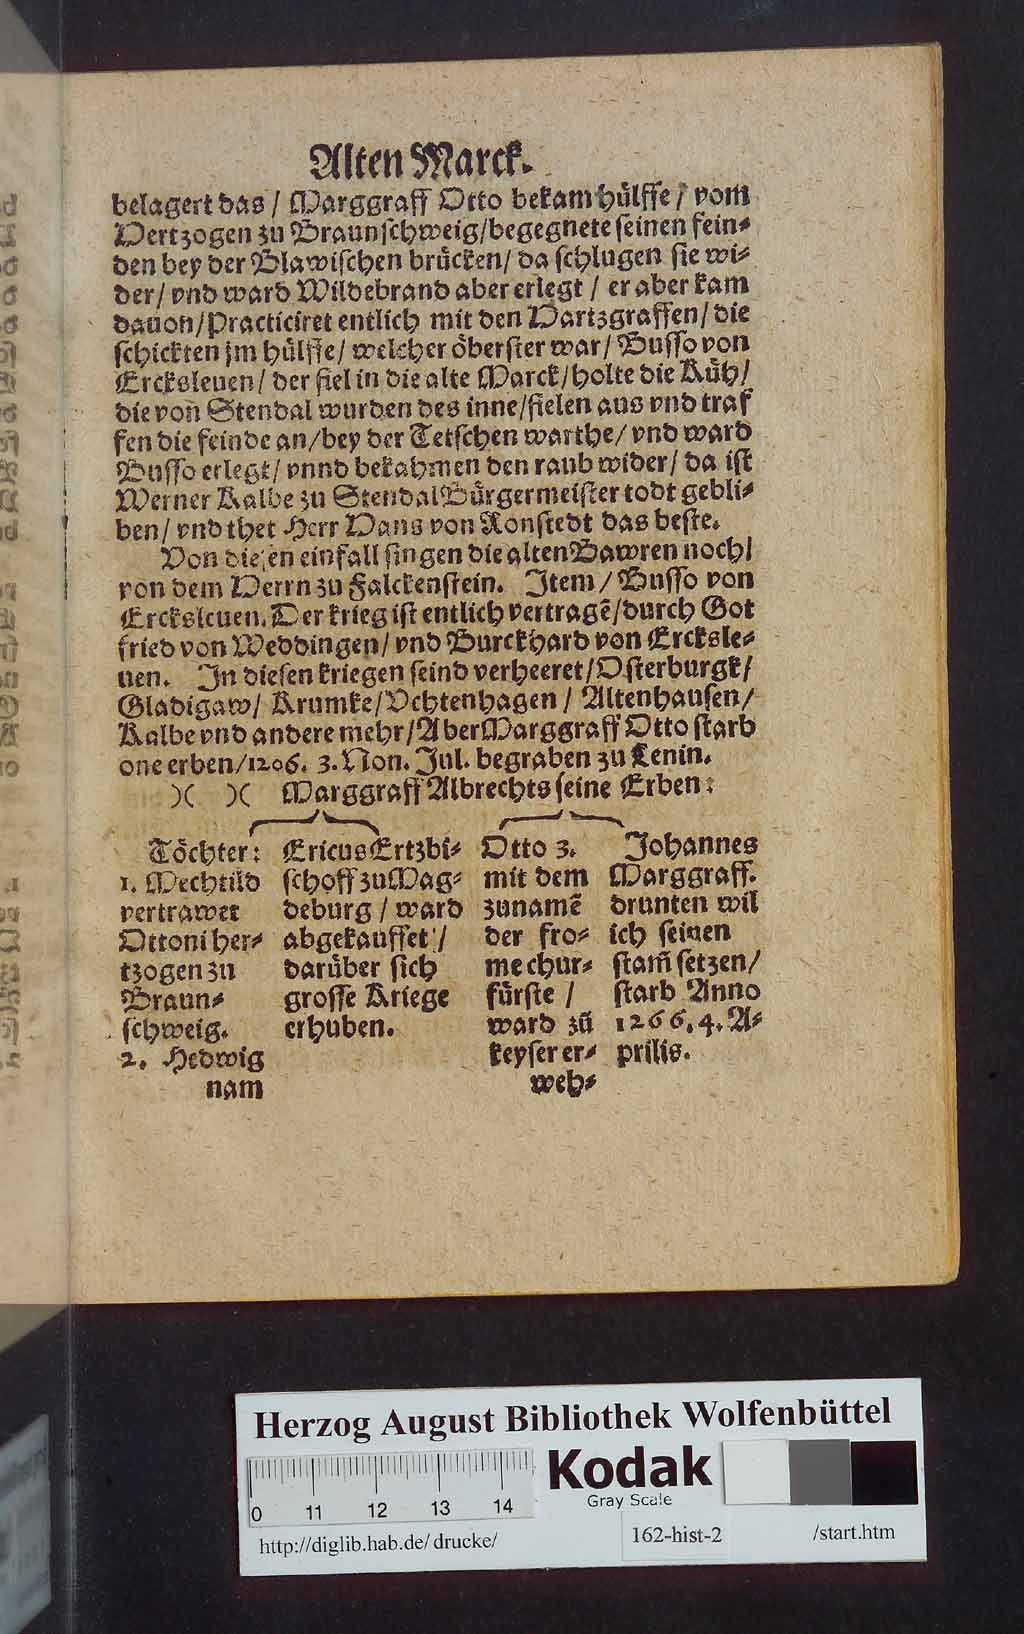 Alten Marck.
belagert das / Marggraff Otto bekam hülffe / vom
Hertzogen zu Braunschweig/begegnete seinen fein⸗
den bey der Blawischen brücken/ da schlugen sie wi⸗
der/ vnd ward Hildebrand aber erlegt / er aber kam
dauon/Practiciret entlich mit den Hartzgraffen/ die
schickten jm hülffe/ welcher öberster war/ Busso von
Ercksleuen/ der fiel in die alte Marck/holte die Küh/
die von Stendal wurden des inne/fielen aus vnd traf
fen die feinde an/bey der Tetschen warthe/ vnd ward
Busso erlegt/ vnnd bekahmen den raub wider/ da ist
Werner Kalbe zu Stendal Bürgermeister todt gebli⸗
ben/ vnd thet Herr Hans von Ronstedt das beste.
Von diesen einfall singen die alten Bawren noch/
von dem Herrn zu Falckenstein. Item/ Busso von
Ercksleuen. Der krieg ist entlich vertragē/durch Got
fried von Weddingen/ vnd Burckhard von Ercksle⸗
uen. In diesen kriegen seind verheeret/Osterburgk/
Gladigaw/ Krumke/Vchtenhagen / Altenhausen/
Kalbe vnd andere mehr/Aber Marggraff Otto starb
one erben/1206. 3. Non. Jul. begraben zu Lenin.
)( )( Marggraff Albrechts seine Erben:
Töchter:
1. Mechtild
vertrawet
Ottoni her⸗
tzogen zu
Braun⸗
schweig.
2. Hedwig
nam
Ericus Ertzbi⸗
schoff zu Mag⸗
deburg / ward
abgekauffet /
darüber sich
grosse Kriege
erhuben.
Otto 3.
mit dem
zunamē
der fro⸗
me chur⸗
fürste /
ward zū
keyser er⸗
weh⸗
Johannes
Marggraff.
drunten wil
ich seinen
stam̄ setzen/
starb Anno
1266. 4. A⸗
prilis.
Herzog August Bibliothek Wolfenbüttel
Kodak
Gray Scale
0 11 12 13 14
http://diglib.hab.de/drucke/
162-hist-2
/start.htm